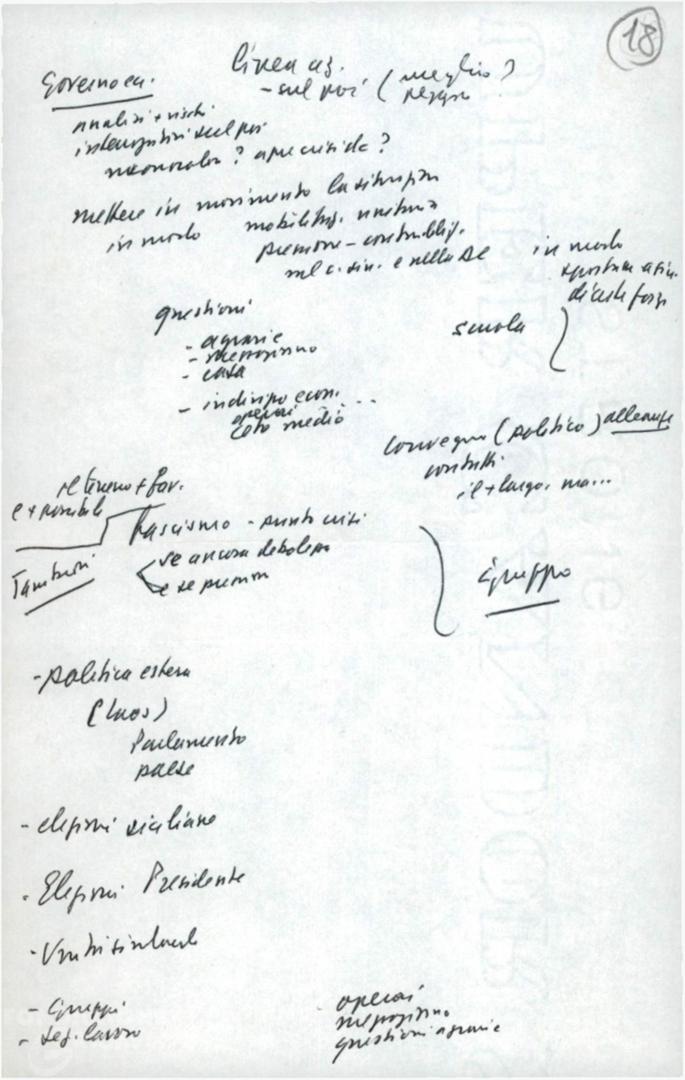 18
Governo
Linea az.
- sul poi ( meglio ?
peggio
analisi + rischi
interrogativi sul poi
? apre crisi dc ?
mettere in movimento la situazion
in modo mobilitaz. unitaria
pressione -
sul c. sin. e nella DC
in modo
di certe forze
questioni
- agrarie
- mezzogiorno
- casa
- indirizzo econ. ...
operai
ceto medio
scuola
convegni (politico) alleanze
contratti
il + largo, ma...
il terreno + fav.
e + possibile
fascismo - punto crisi
se ancora debolezza
e se
Tamburi
Gruppo
- politica estera
(Laos)
Parlamento
paese
- elezioni siciliane
- Elezioni Presidente
- Unità sindacale
- Gruppi
- sez. lavoro
operai
mezzogiorno
questioni agrarie